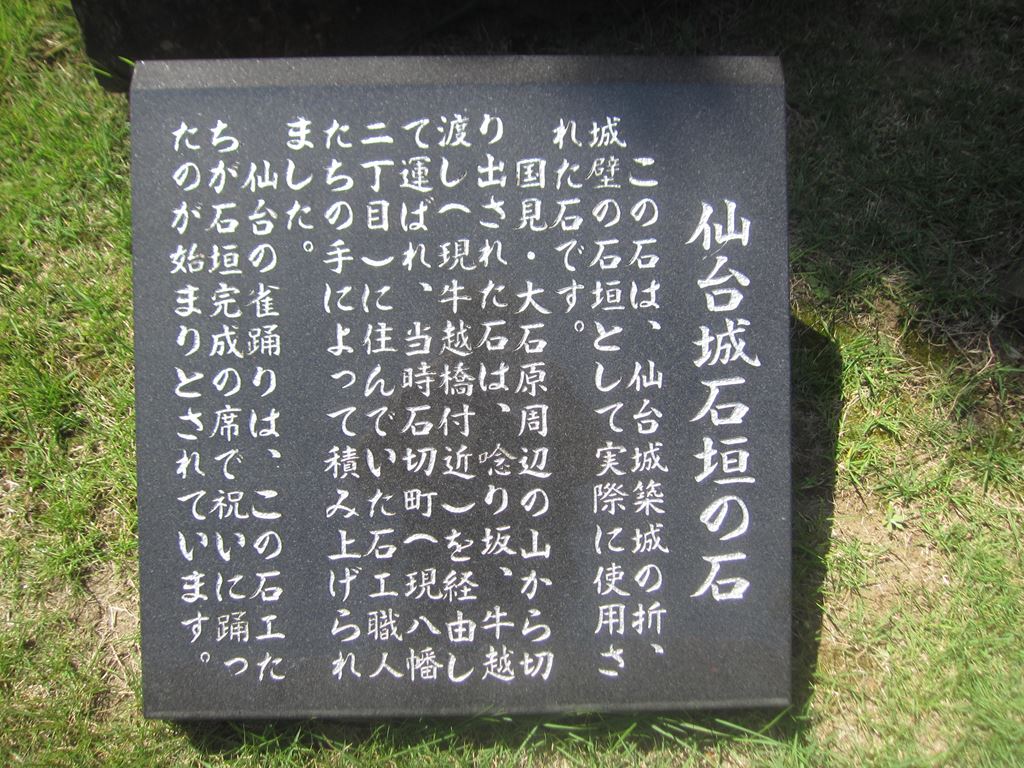 仙台城石垣の石
この石は、仙台城築城の折、
城壁の石垣として実際に使用さ
れた石です。
国見・大石原周辺の山から切
り出された石は、唸り坂、牛越
渡し(現牛越橋付近)を経由し
て運ばれ、当時石切町(現八幡
二丁目)に住んでいた石工職人
たちの手によって積み上げられ
ました。
仙台の雀踊りは、この石工た
ちが石垣完成の席で祝いに踊っ
たのが始まりとされています。